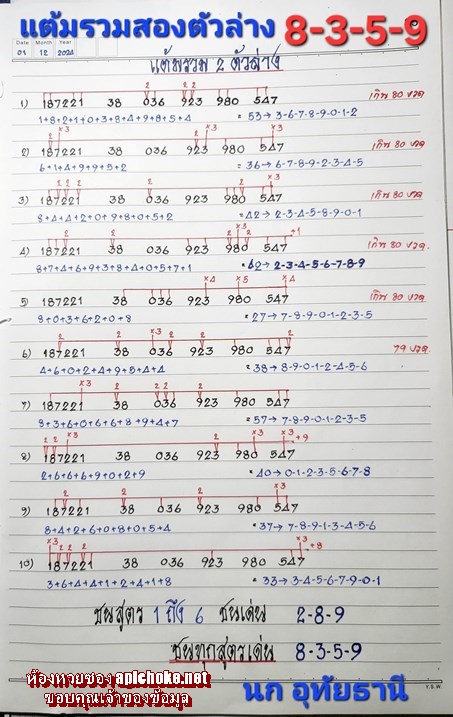 แต้มรวมสองตัวล่าง 8-3-5-9
Date Month Year
01 12 2024
แต้มรวม 2 ตัวล่าง
1) 187221 38 036 923 980 547 เกิน 80 งวด
2 2 2
1+8+2+1+0+3+8+4+9+8+5+4 = 53 → 3-6-7-8-9-0-1-2
×3 ×3 ×3
2) 187221 38 036 923 980 547 เกิน 80 งวด
6+1+4+9+9+5+2 = 36 → 6-7-8-9-2-3-4-5
2 2 2 2 ×3
3) 187221 38 036 923 980 547 เกิน 80 งวด
8+4+4+2+0+9+8+0+5+2 = 42 → 2-3-4-5-8-9-0-1
4) 187221 38 036 923 980 547 +1 เกิน 80 งวด
8+7+4+6+9+3+8+4+0+5+7+1 = 62 → 2-3-4-5-6-7-8-9
×4 ×5 ×4
5) 187221 38 036 923 980 547 เกิน 80 งวด
8+0+3+6+2+0+8 = 27 → 7-8-9-0-1-2-3-5
6) 187221 38 036 923 980 547 79 งวด
4+6+0+2+4+9+5+4+4 = 38 → 8-9-0-1-2-4-5-6
7) 187221 38 036 923 980 547
8+3+6+0+6+6+8+9+4+7 = 57 → 7-8-9-0-1-2-3-5
8) 187221 38 036 923 980 547 +9
2+6+6+6+9+0+2+9 = 40 → 0-1-2-3-5-6-7-8
9) 187221 38 036 923 980 547
8+4+2+6+0+8+0+5+4 = 37 → 7-8-9-1-3-4-5-6
10) 187221 38 036 923 980 547 +8
3+6+4+4+1+2+4+1+8 = 33 → 3-4-5-6-7-9-0-1
ชนสูตร 1 ถึง 6 ชนเด่น 2-8-9
ชนทุกสูตรเด่น 8-3-5-9
ห้องหวยซอง apichoke.net
ขอบคุณเจ้าของข้อมูล
นก อุทัยธานี